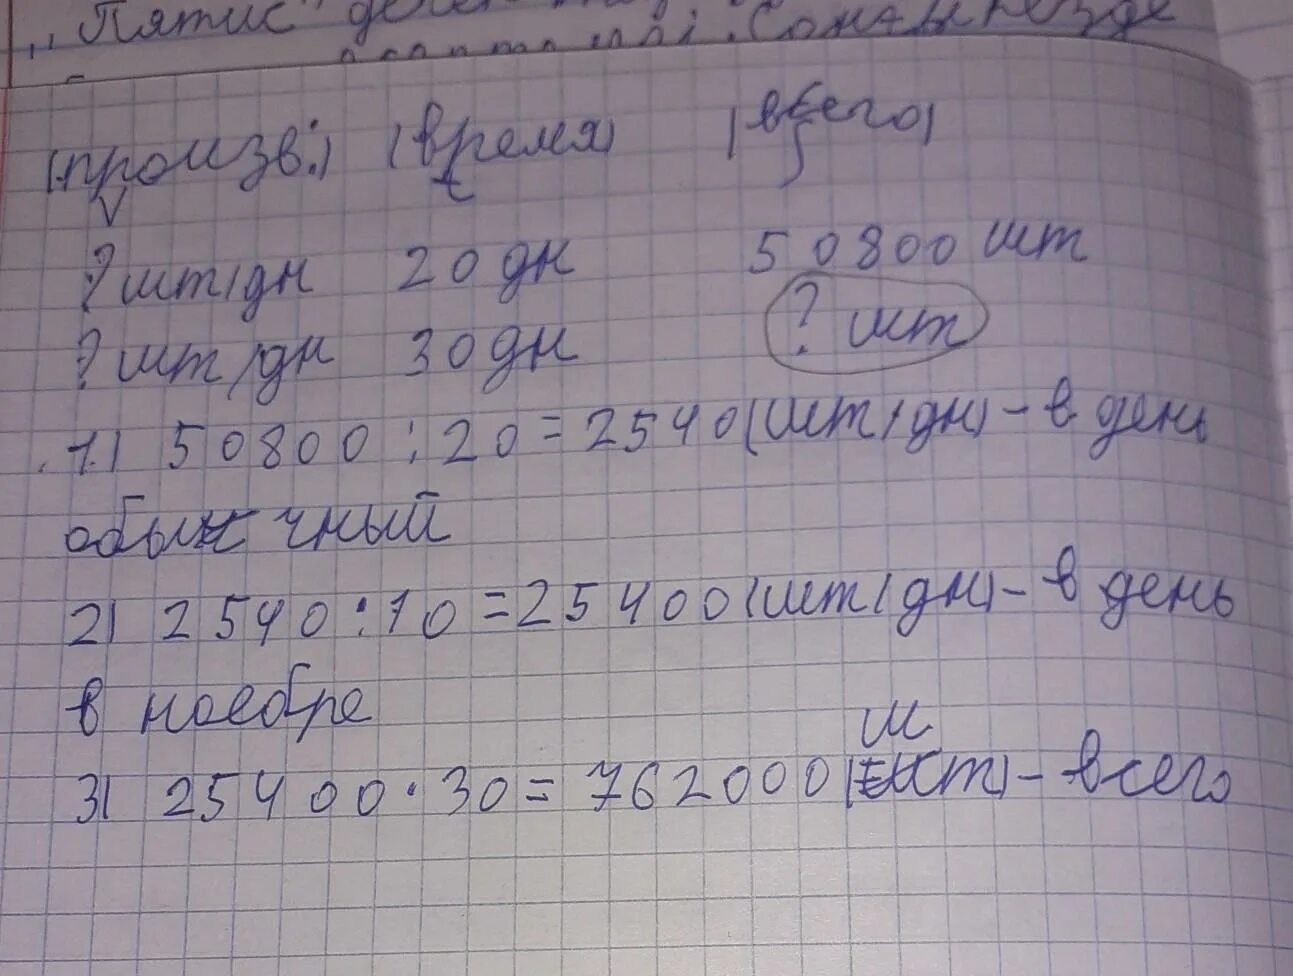 „Пятис"
(произв.) (время) (всего)
V t S
? шт/дн 20 дн 50800 шт
? шт/дн 30 дн ? шт
1) 50800 : 20 = 2540 (шт/дн) - в день
обычный
2) 2540 : 10 = 25400 (шт/дн) - в день
в ноебре
3) 25400 · 30 = 762000 (шт) - всего